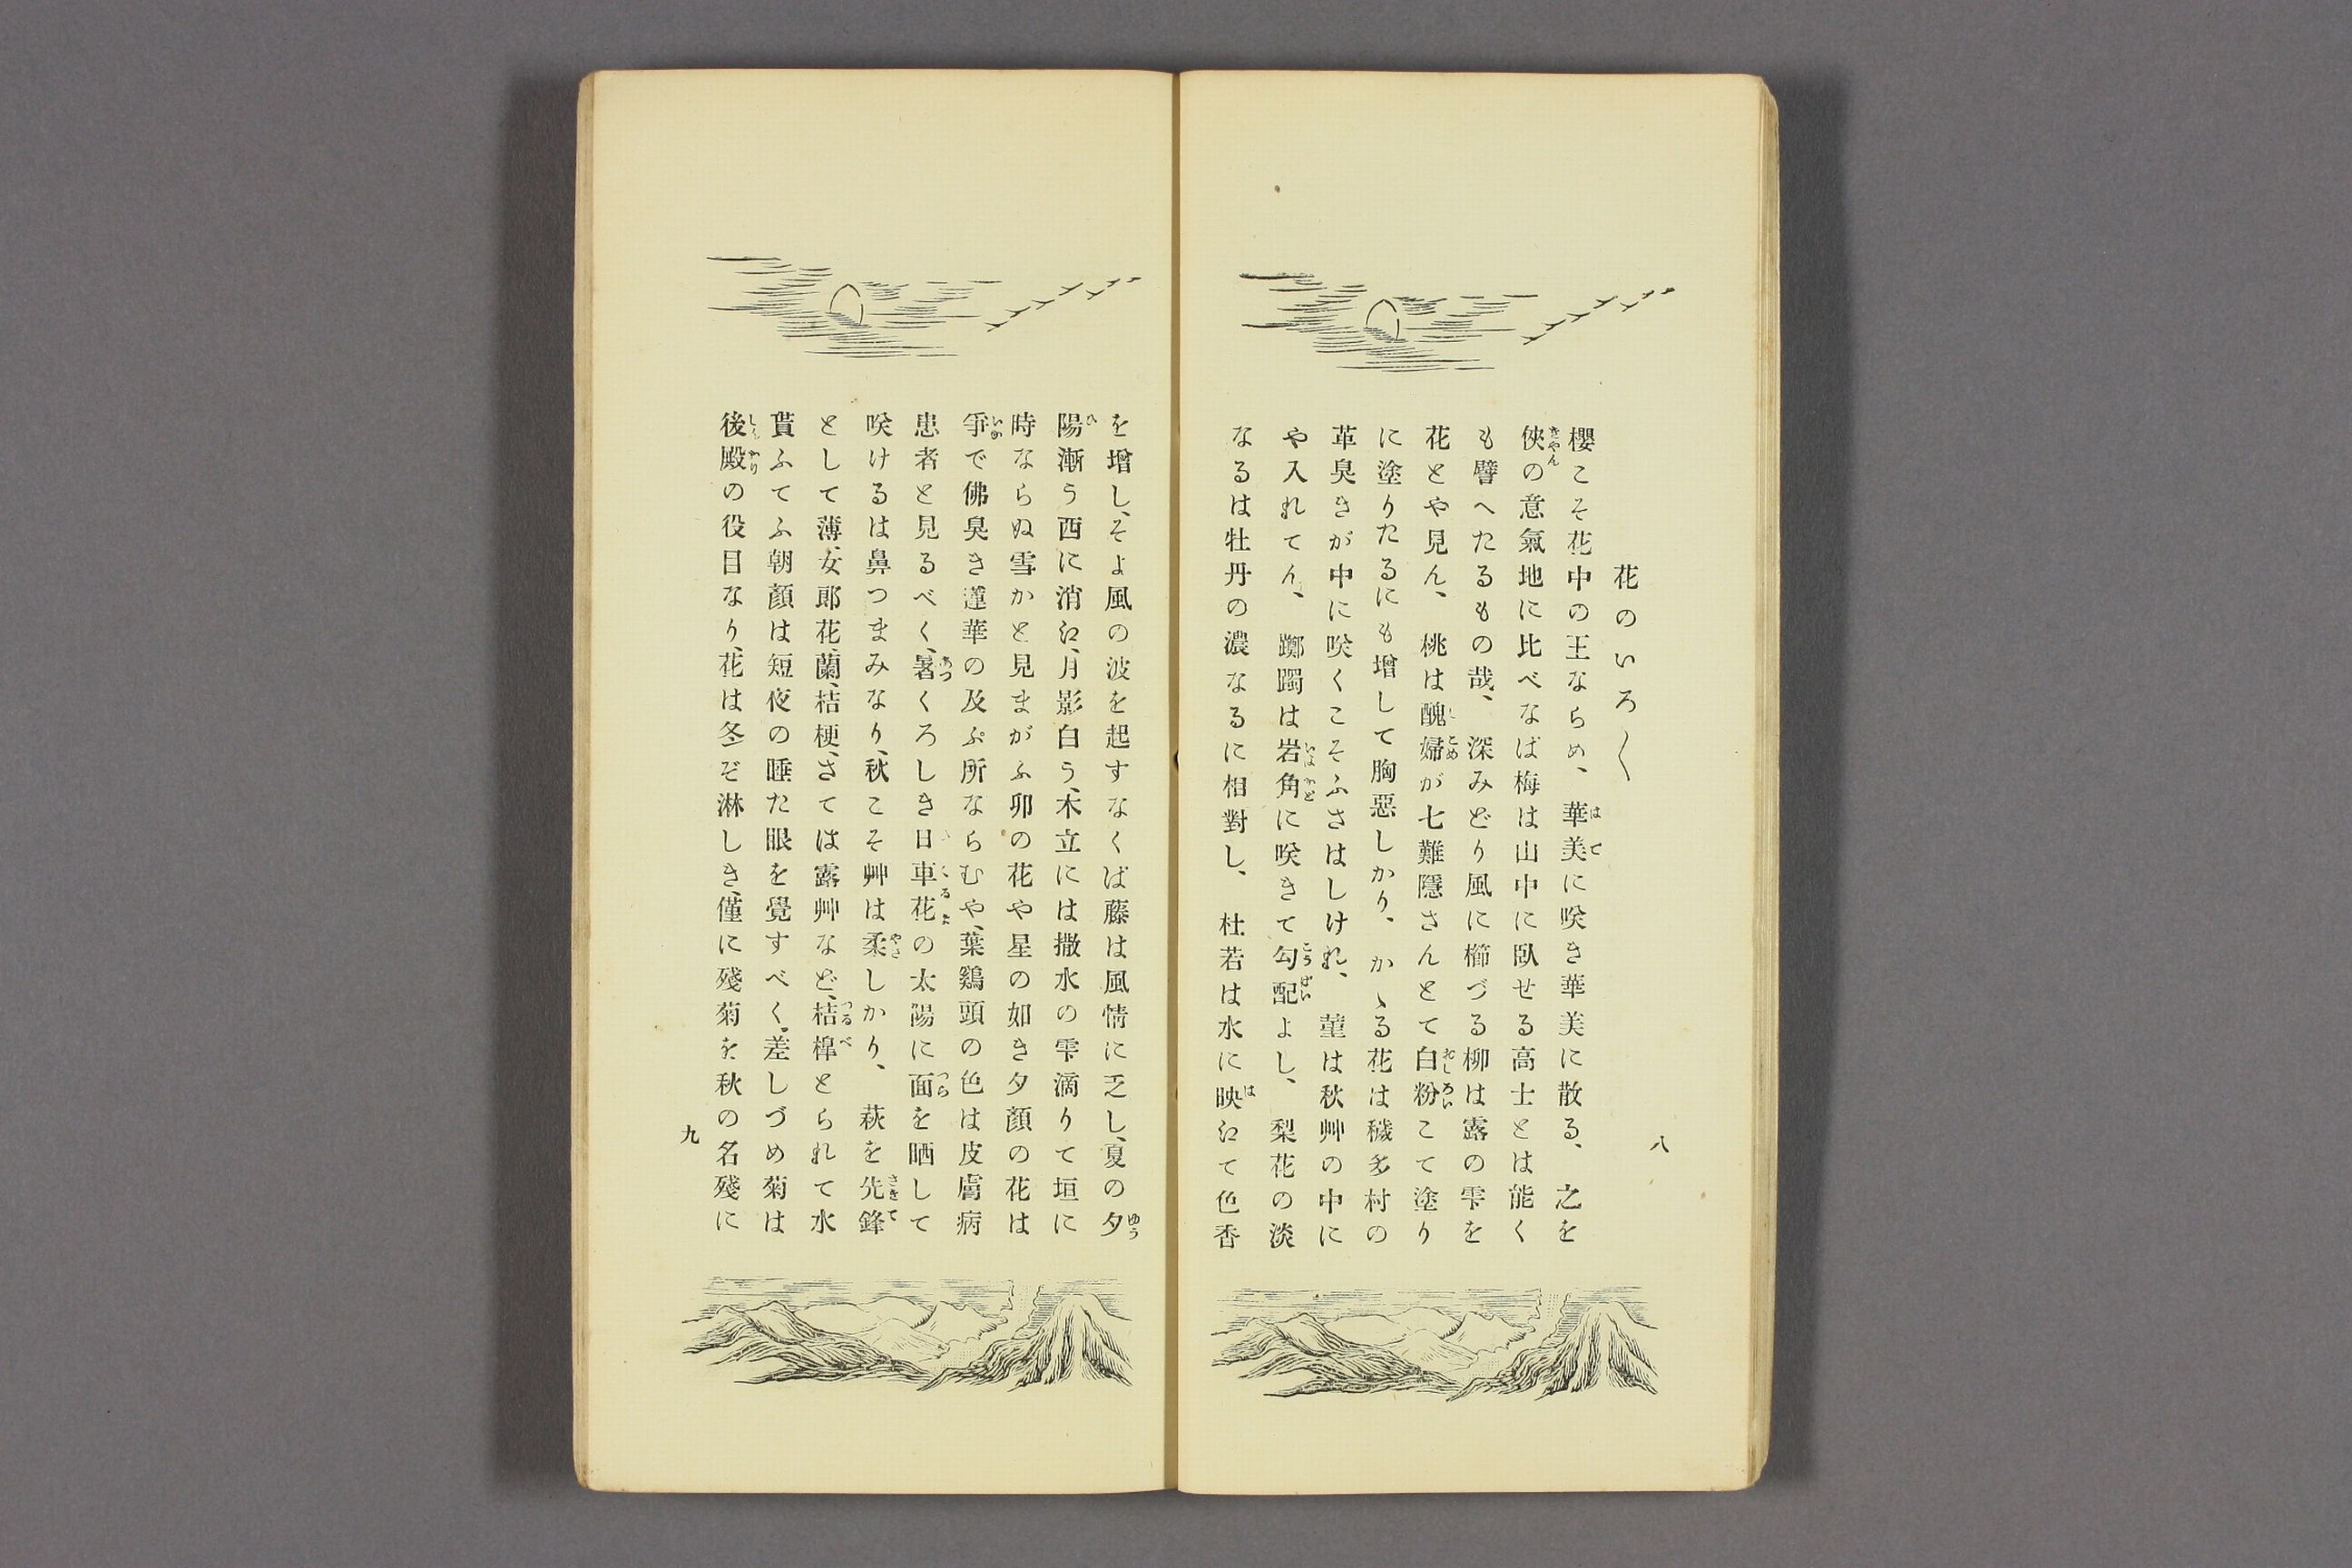 花のいろ〱
櫻こそ花中の王ならめ、華美に咲き華美に散る、之を
俠の意氣地に比べなば梅は山中に臥せる高士とは能く
も譬へたるもの哉、深みどり風に櫛づる柳は露の雫を
花とや見ん、桃は醜婦が七難隱さんとて白粉こて塗り
に塗りたるにも增して胸惡しかり、かゝる花は穢多村の
革臭きが中に咲くこそふさはしけれ、菫は秋艸の中に
や入れてん、躑躅は岩角に咲きて勾配よし、梨花の淡
なるは牡丹の濃なるに相對し、杜若は水に映江て色香
八
を增し、そよ風の波を起すなくば藤は風情に乏し、夏の夕
陽漸う西に消江、月影白う、木立には撒水の雫滴りて垣に
時ならぬ雪かと見まがふ卯の花や星の如き夕顏の花は
爭で佛臭き蓮華の及ぶ所ならむや、葉鷄頭の色は皮膚病
患者と見るべく、暑くろしき日車花の太陽に面を晒して
咲けるは鼻つまみなり、秋こそ艸は柔しかり、萩を先鋒
として薄、女郎花、蘭、桔梗、さては露艸など、桔槹とられて水
貰ふてふ朝顏は短夜の睡た眼を覺すべく、差しづめ菊は
後殿の役目なり、花は冬ぞ淋しき、僅に殘菊を秋の名殘に
九